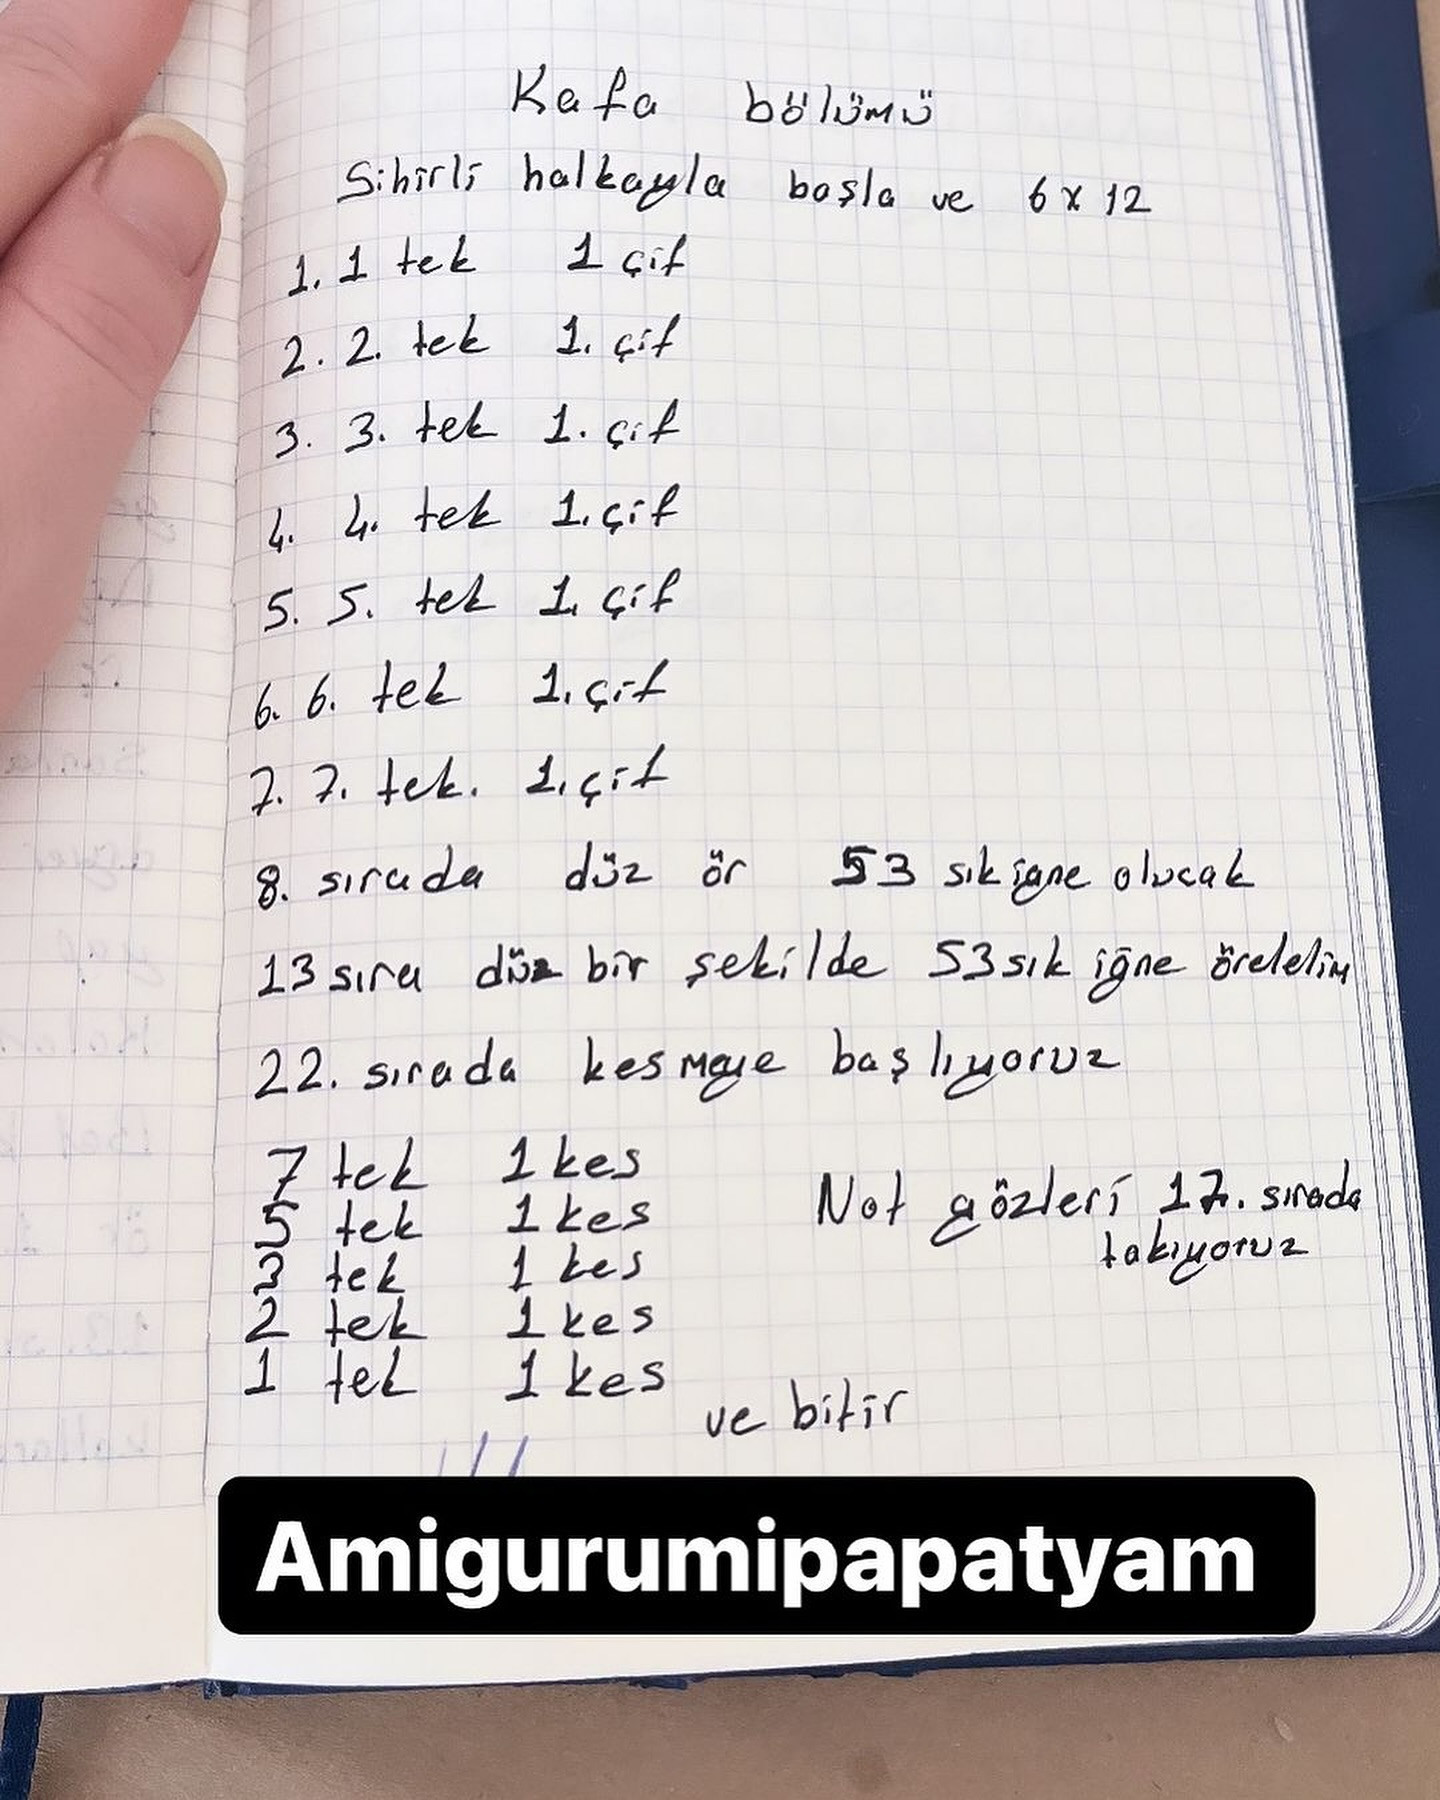 Kafa bölümü
Sihirli halkayla başla ve 6x12
1. 1 tek 1 çif
2. 2. tek 1. çif
3. 3. tek 1. çif
4. 4. tek 1. çif
5. 5. tek 1. çif
6. 6. tek 1. çif
7. 7. tek. 1. çif
8. sırada düz ör 53 sık iğne olucak
13 sıra düz bir şekilde 53 sık iğne örelelim
22. sırada kesmeye başlıyoruz
7 tek 1 kes
5 tek 1 kes
3 tek 1 kes
2 tek 1 kes
1 tek 1 kes
ve bitir
Not gözleri 17. sırada
takıyoruz
Amigurumipapatyam